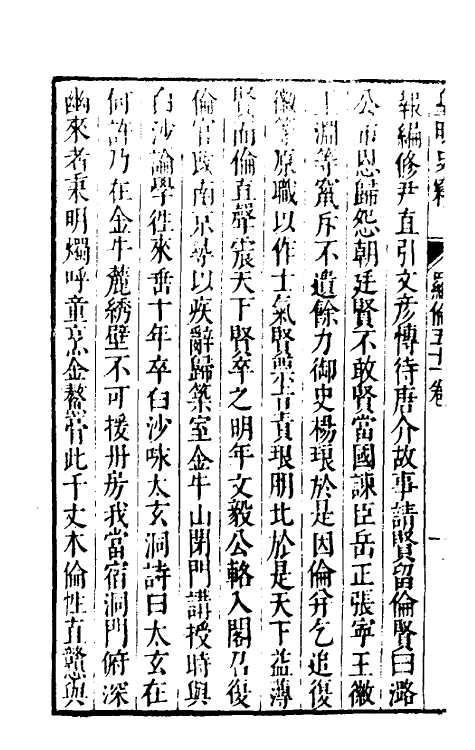 皇明史竊　羅倫五十一卷　一
報編修尹直引文彥博待唐介故事請賢留倫賢曰潞
公市恩歸怨朝廷賢不敢賢當國諫臣岳正張寧王徽
王淵等竄斥不遺餘力御史楊琅於是因倫并乞追復
徽等原職以作士氣賢票旨責琅朋比於是天下益薄
賢而倫直聲震天下賢卒之明年文毅公輅入閣召復
倫官改南京尋以疾辭歸築室金牛山閉門講授時與
白沙論學徃來垂十年卒白沙咏太玄洞詩曰太玄在
何許乃在金牛麓綉壁不可援丹房我當宿洞門俯深
幽來者秉明燭呼童烹金鰲嘗此千丈木倫性直戇與